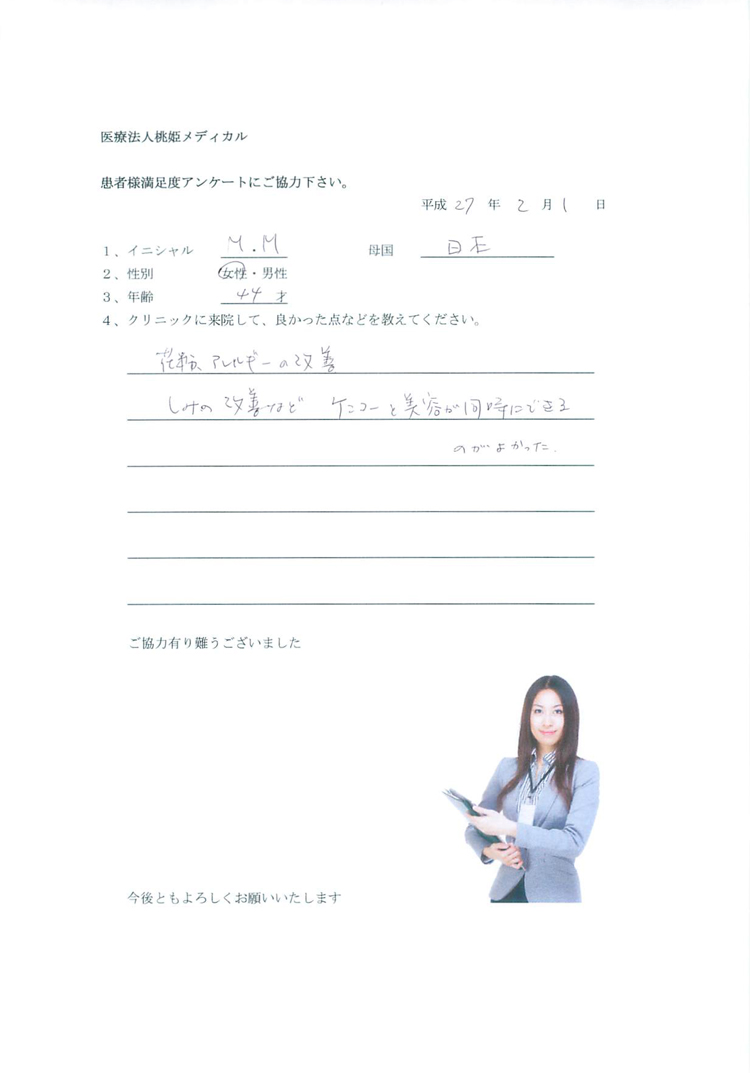 医療法人桃姫メディカル
患者様満足度アンケートにご協力下さい。
平成 27 年 2 月 1 日
1、イニシャル M.M 母国 日本
2、性別 女性・男性
3、年齢 44才
4、クリニックに来院して、良かった点などを教えてください。
花粉、アレルギーの改善
しみの改善など ケンコーと美容が同時にできる
のがよかった.
ご協力有り難うございました
今後ともよろしくお願いいたします